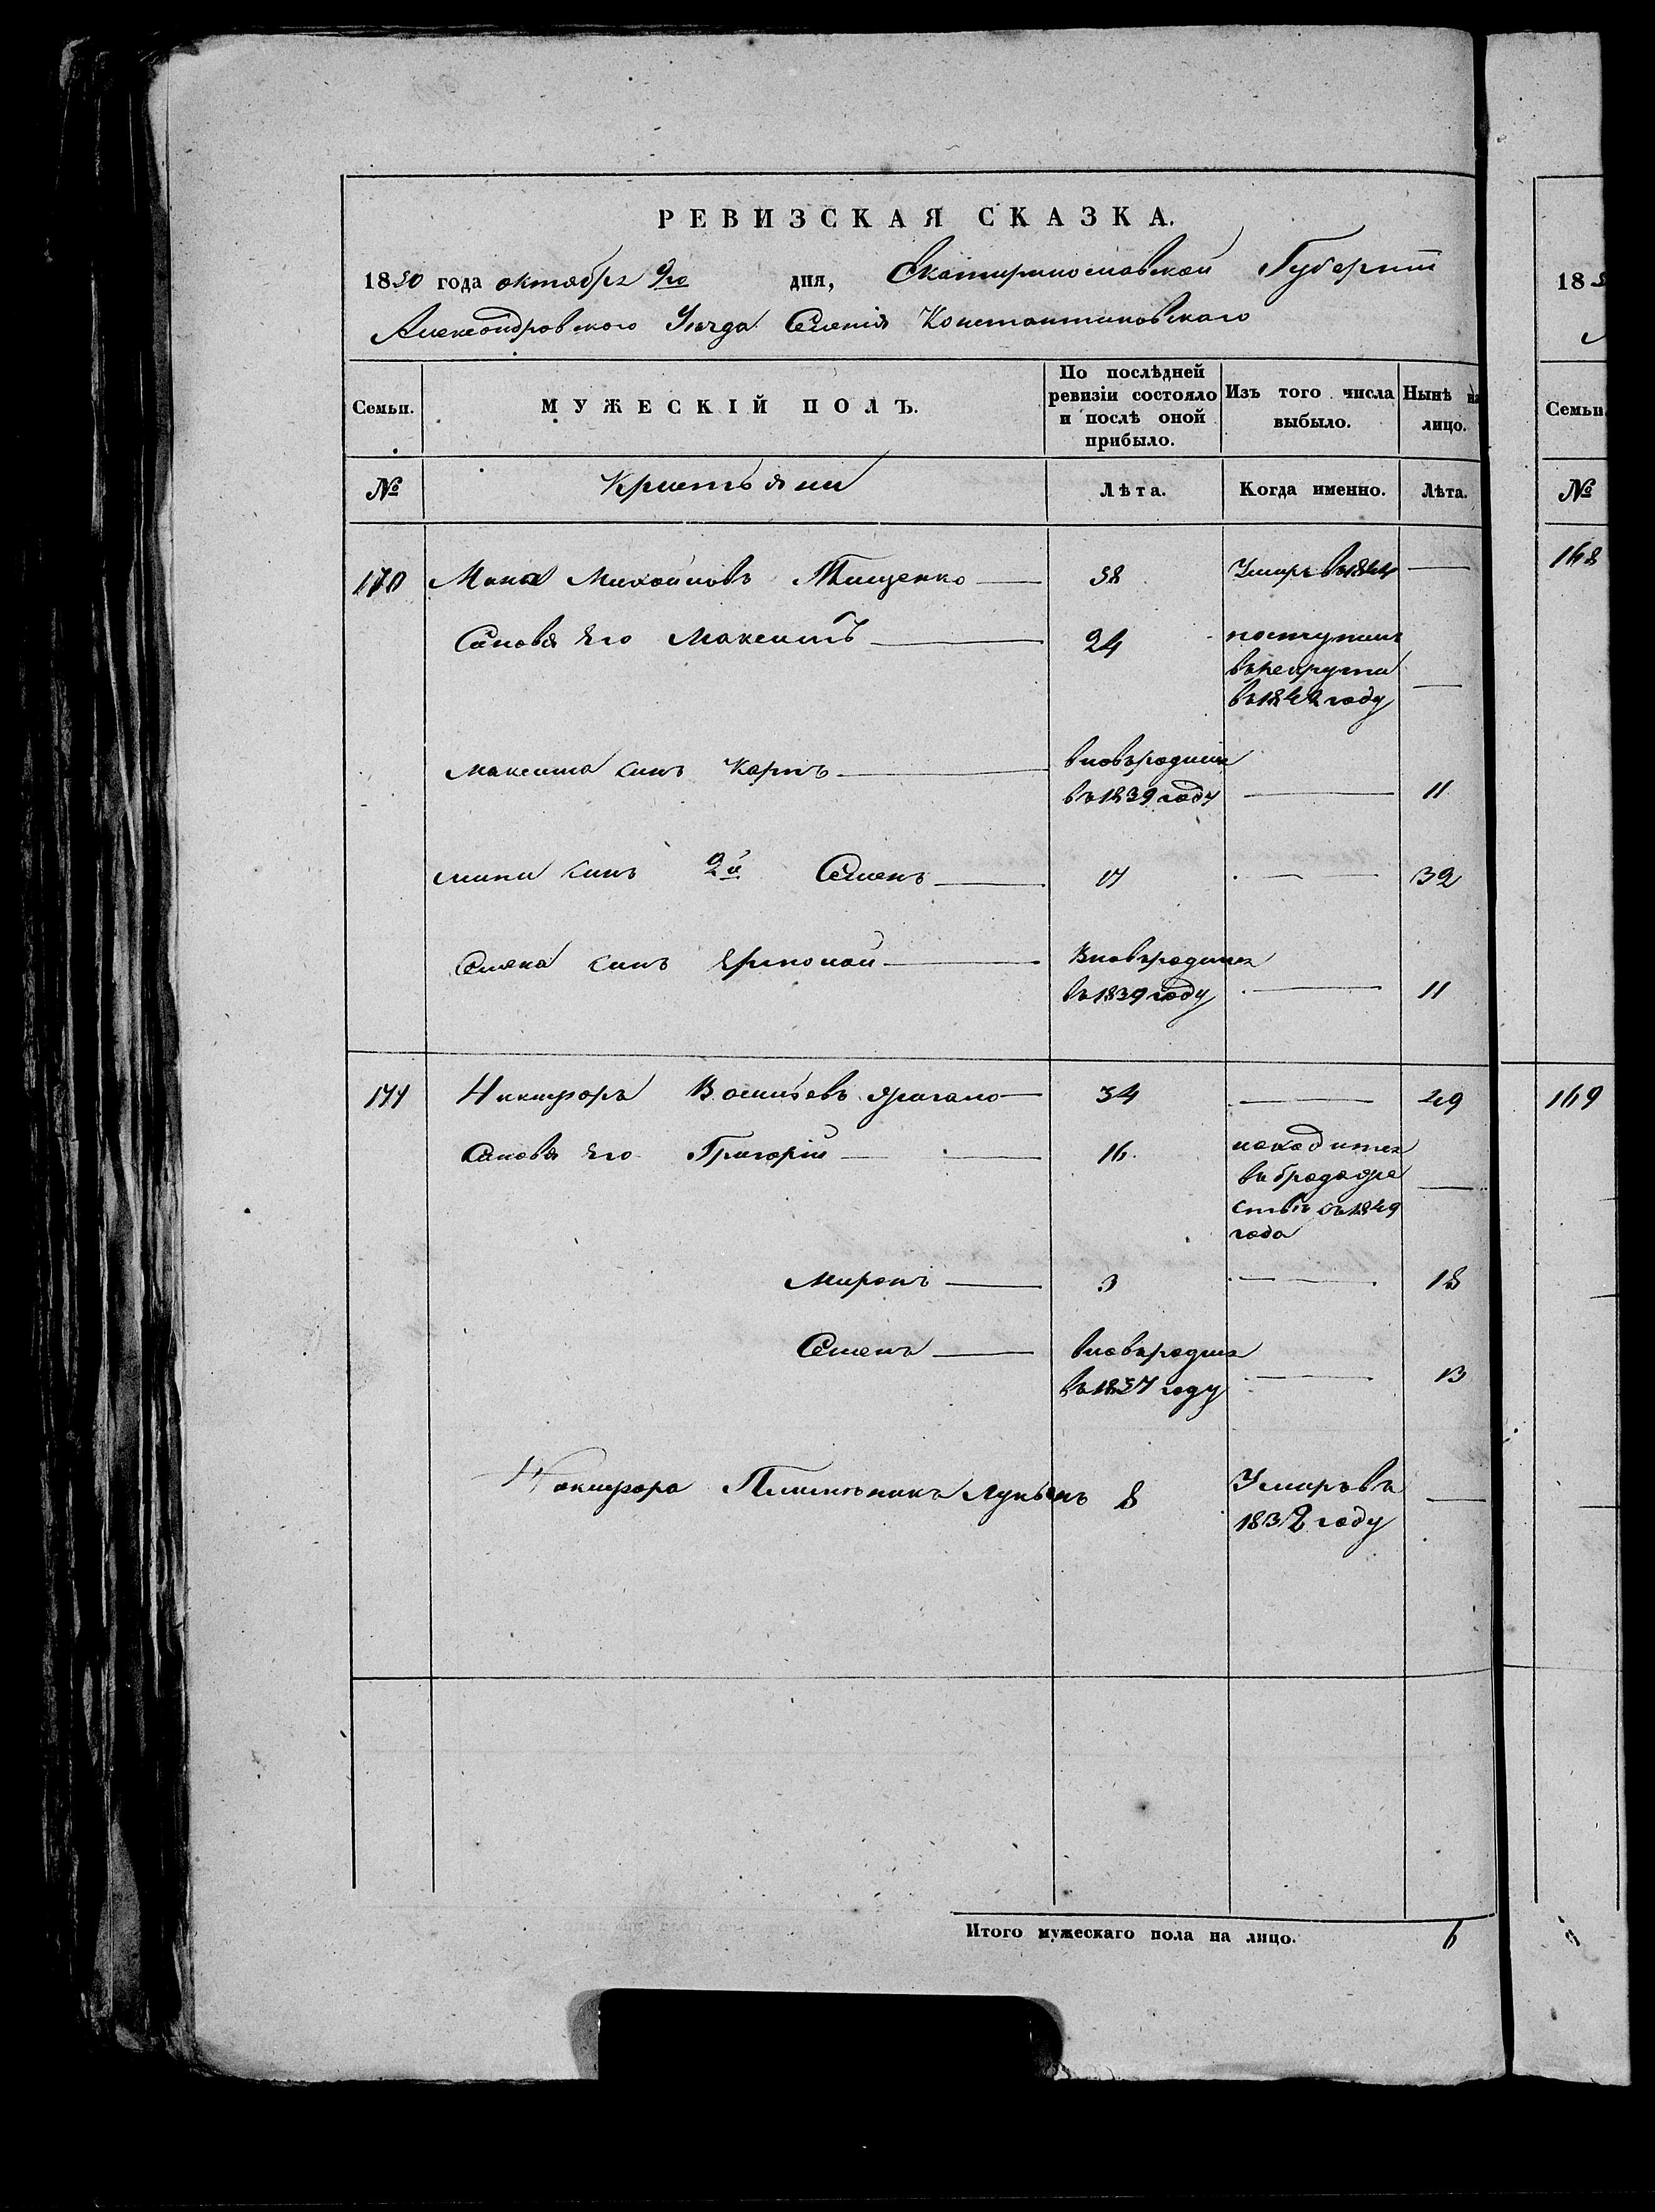 РЕВИЗСКАЯ СКАЗКА.
1850 года октября 9го дня, Екатеринославской Губернии
Александровского Уезда Селенія Константиновскаго
Семьи. МУЖЕСКІЙ ПОЛЪ. По послѣдней ревизіи состояло и послѣ оной прибыло. Изъ того числа выбыло. Нынѣ на лицо.
№ Крестьяни Лѣта. Когда именно. Лѣта.
170 Мина Михайловъ Тищенко 38 Умеръ въ 1844 —
Синовя Его Максимъ 24 поступилъ
въ рекрути
въ 1842 году —
Максима синъ Карпъ вновьродился
въ 1839 году — 11
мини синъ 2й Семенъ 17 — 32
Семена синъ Ермолай Вновьродился
въ 1839 году — 11
171 Никифоръ Васильевъ 34 — 49
Синовя Его Григорій 16 находится
въ бродяже
ствѣ съ 1849
года —
Миронъ 3 — 18
Семенъ вновьродился
въ 1837 году — 13
Никифора Племѣникъ Лукьянъ 8 Умеръ въ
1838 году —
Итого мужескаго пола на лицо. 6
18
Семьи.
№
168
169